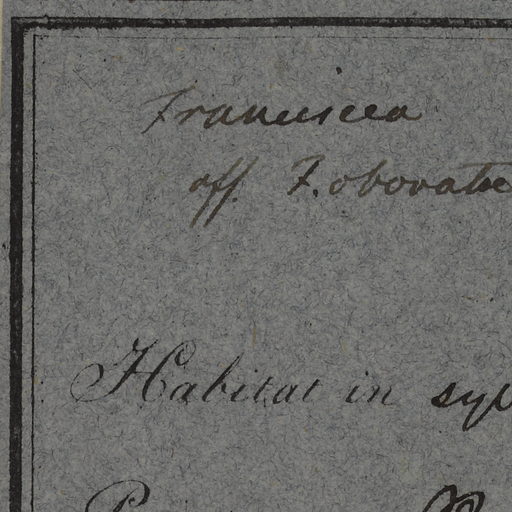 Franciscea
aff. F. obovatae
Habitat in